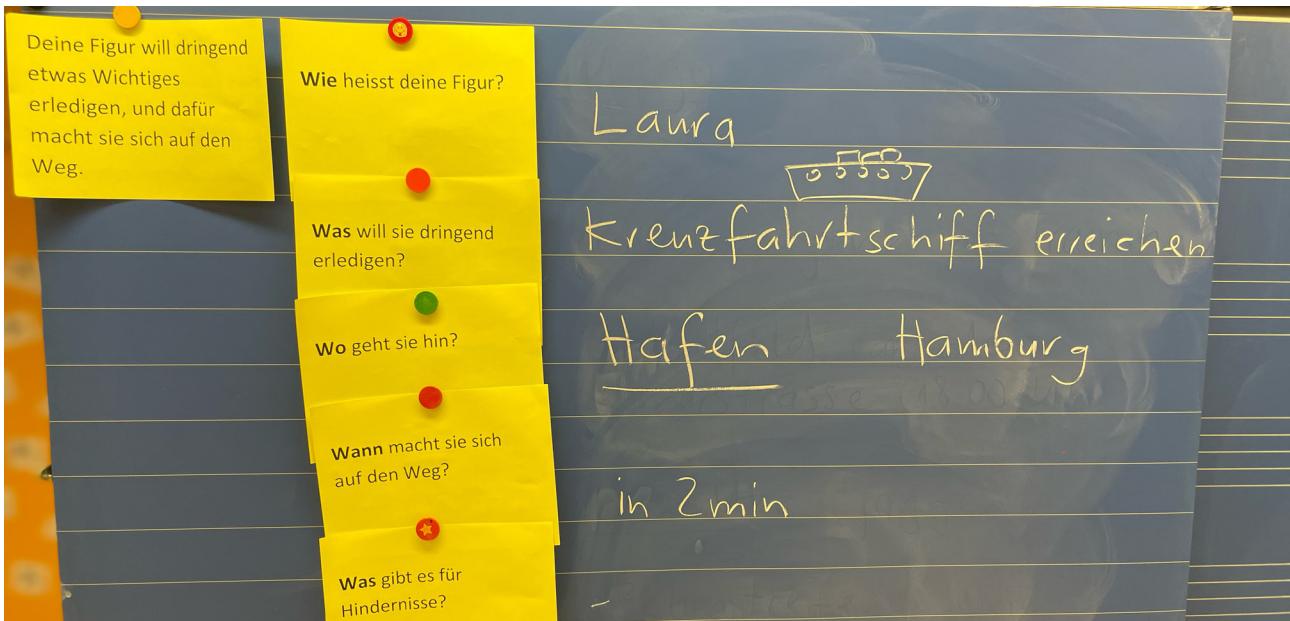 Deine Figur will dringend
etwas Wichtiges
erledigen, und dafür
macht sie sich auf den
Weg.
Wie heisst deine Figur?
Laura
Was will sie dringend
erledigen?
Kreuzfahrtschiff erreichen
Wo geht sie hin?
Hafen Hamburg
Wann macht sie sich
auf den Weg?
in 2min
Was gibt es für
Hindernisse?
-